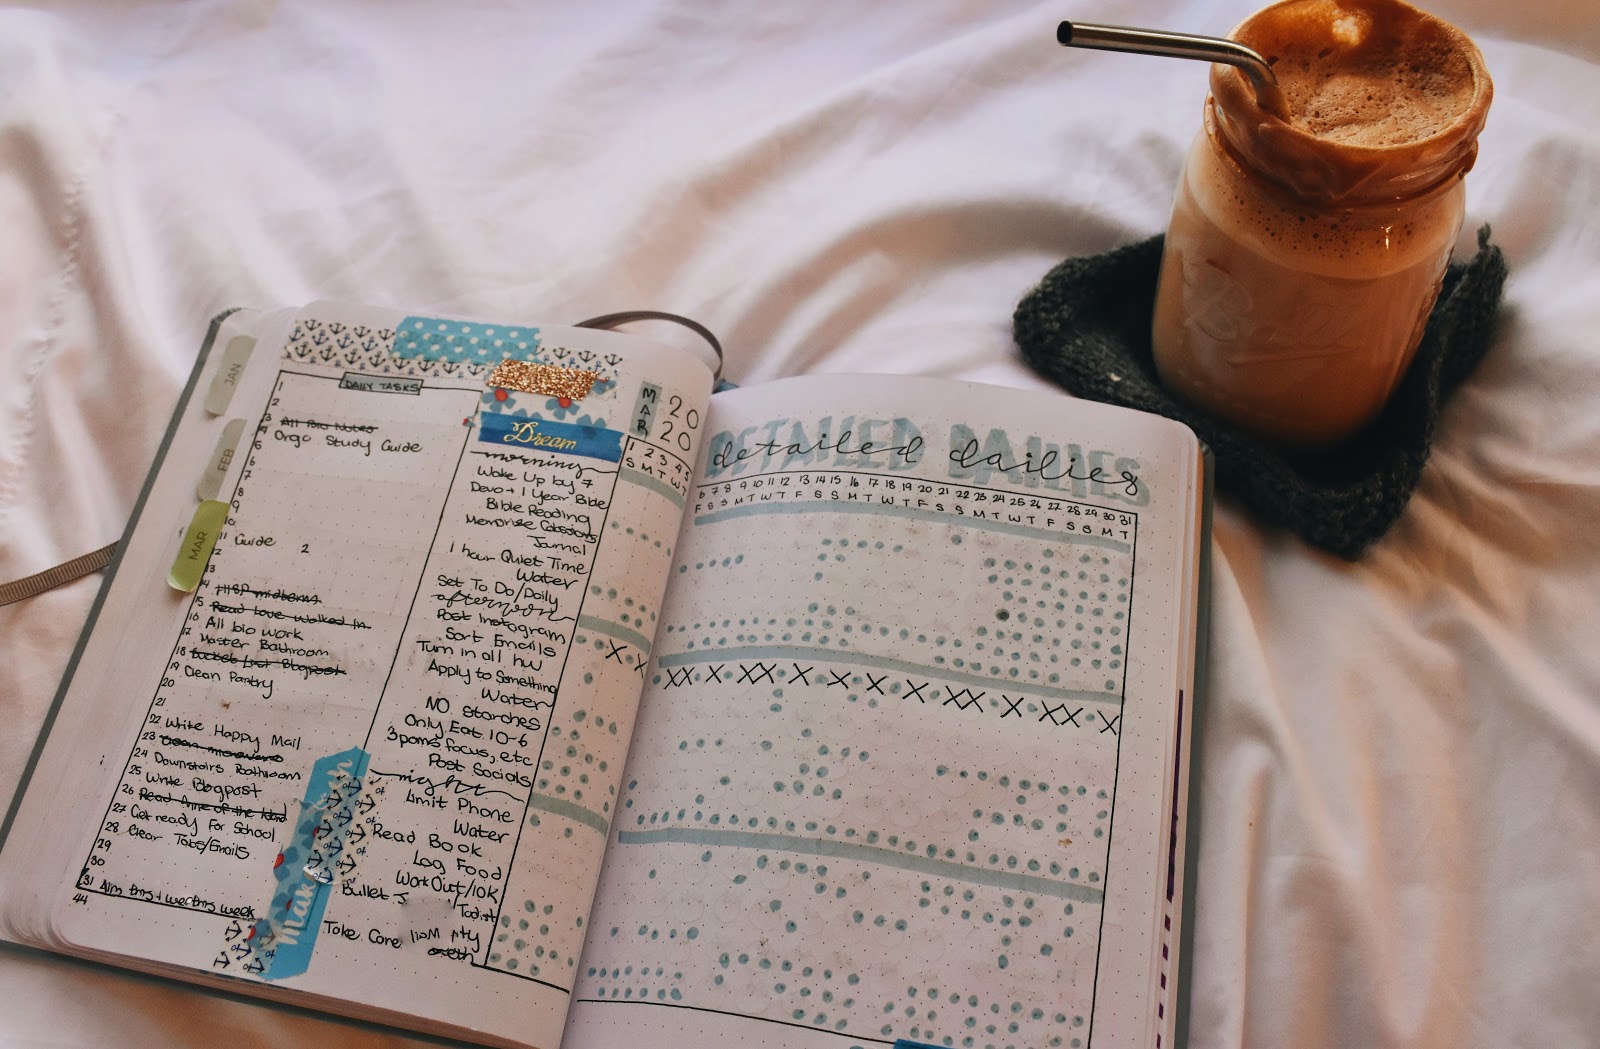 JAN
FEB
MAR
DAILY TASKS
1
2
3 All Bio Notes
4 Orgo Study Guide
5
6
7
8
9
10
11 Guide 2
12
13
14 midterms
15 Read Love Walked In
16 All bio work
17 Master Bathroom
18 Bucket List Blogpost
19 Clean Pantry
20
21
22 Write Happy Mail
23 Clean microwave
24 Downstairs Bathroom
25 Write Blogpost
26 Read Anne of the Island
27 Get ready For School
28 Clear Tabs/Emails
29
30
31 Aim this + week
44
Dream
morning
Wake Up by 7
Devo + 1 Year Bible
Bible Reading
Memorize Colossians
Journal
1 hour Quiet Time
Water
Set To Do/Daily
afternoon
Post Instagram
Sort Emails
Turn in all hw
Apply to Something
Water
NO starches
Only Eat 10-6
3 poms focus, etc
Post Socials
night
Limit Phone
Water
Read Book
Log Food
WorkOut/10K
Bullet J
Todist
Take Care
MAR
20
20
1 2 3 4 5
S M T W T
DETAILED DAILIES
detailed dailies
6 7 8 9 10 11 12 13 14 15 16 17 18 19 20 21 22 23 24 25 26 27 28 29 30 31
F S S M T W T F S S M T W T F S S M T W T F S S M T
X X
XX X XX X X X X XX X XX X
Ball